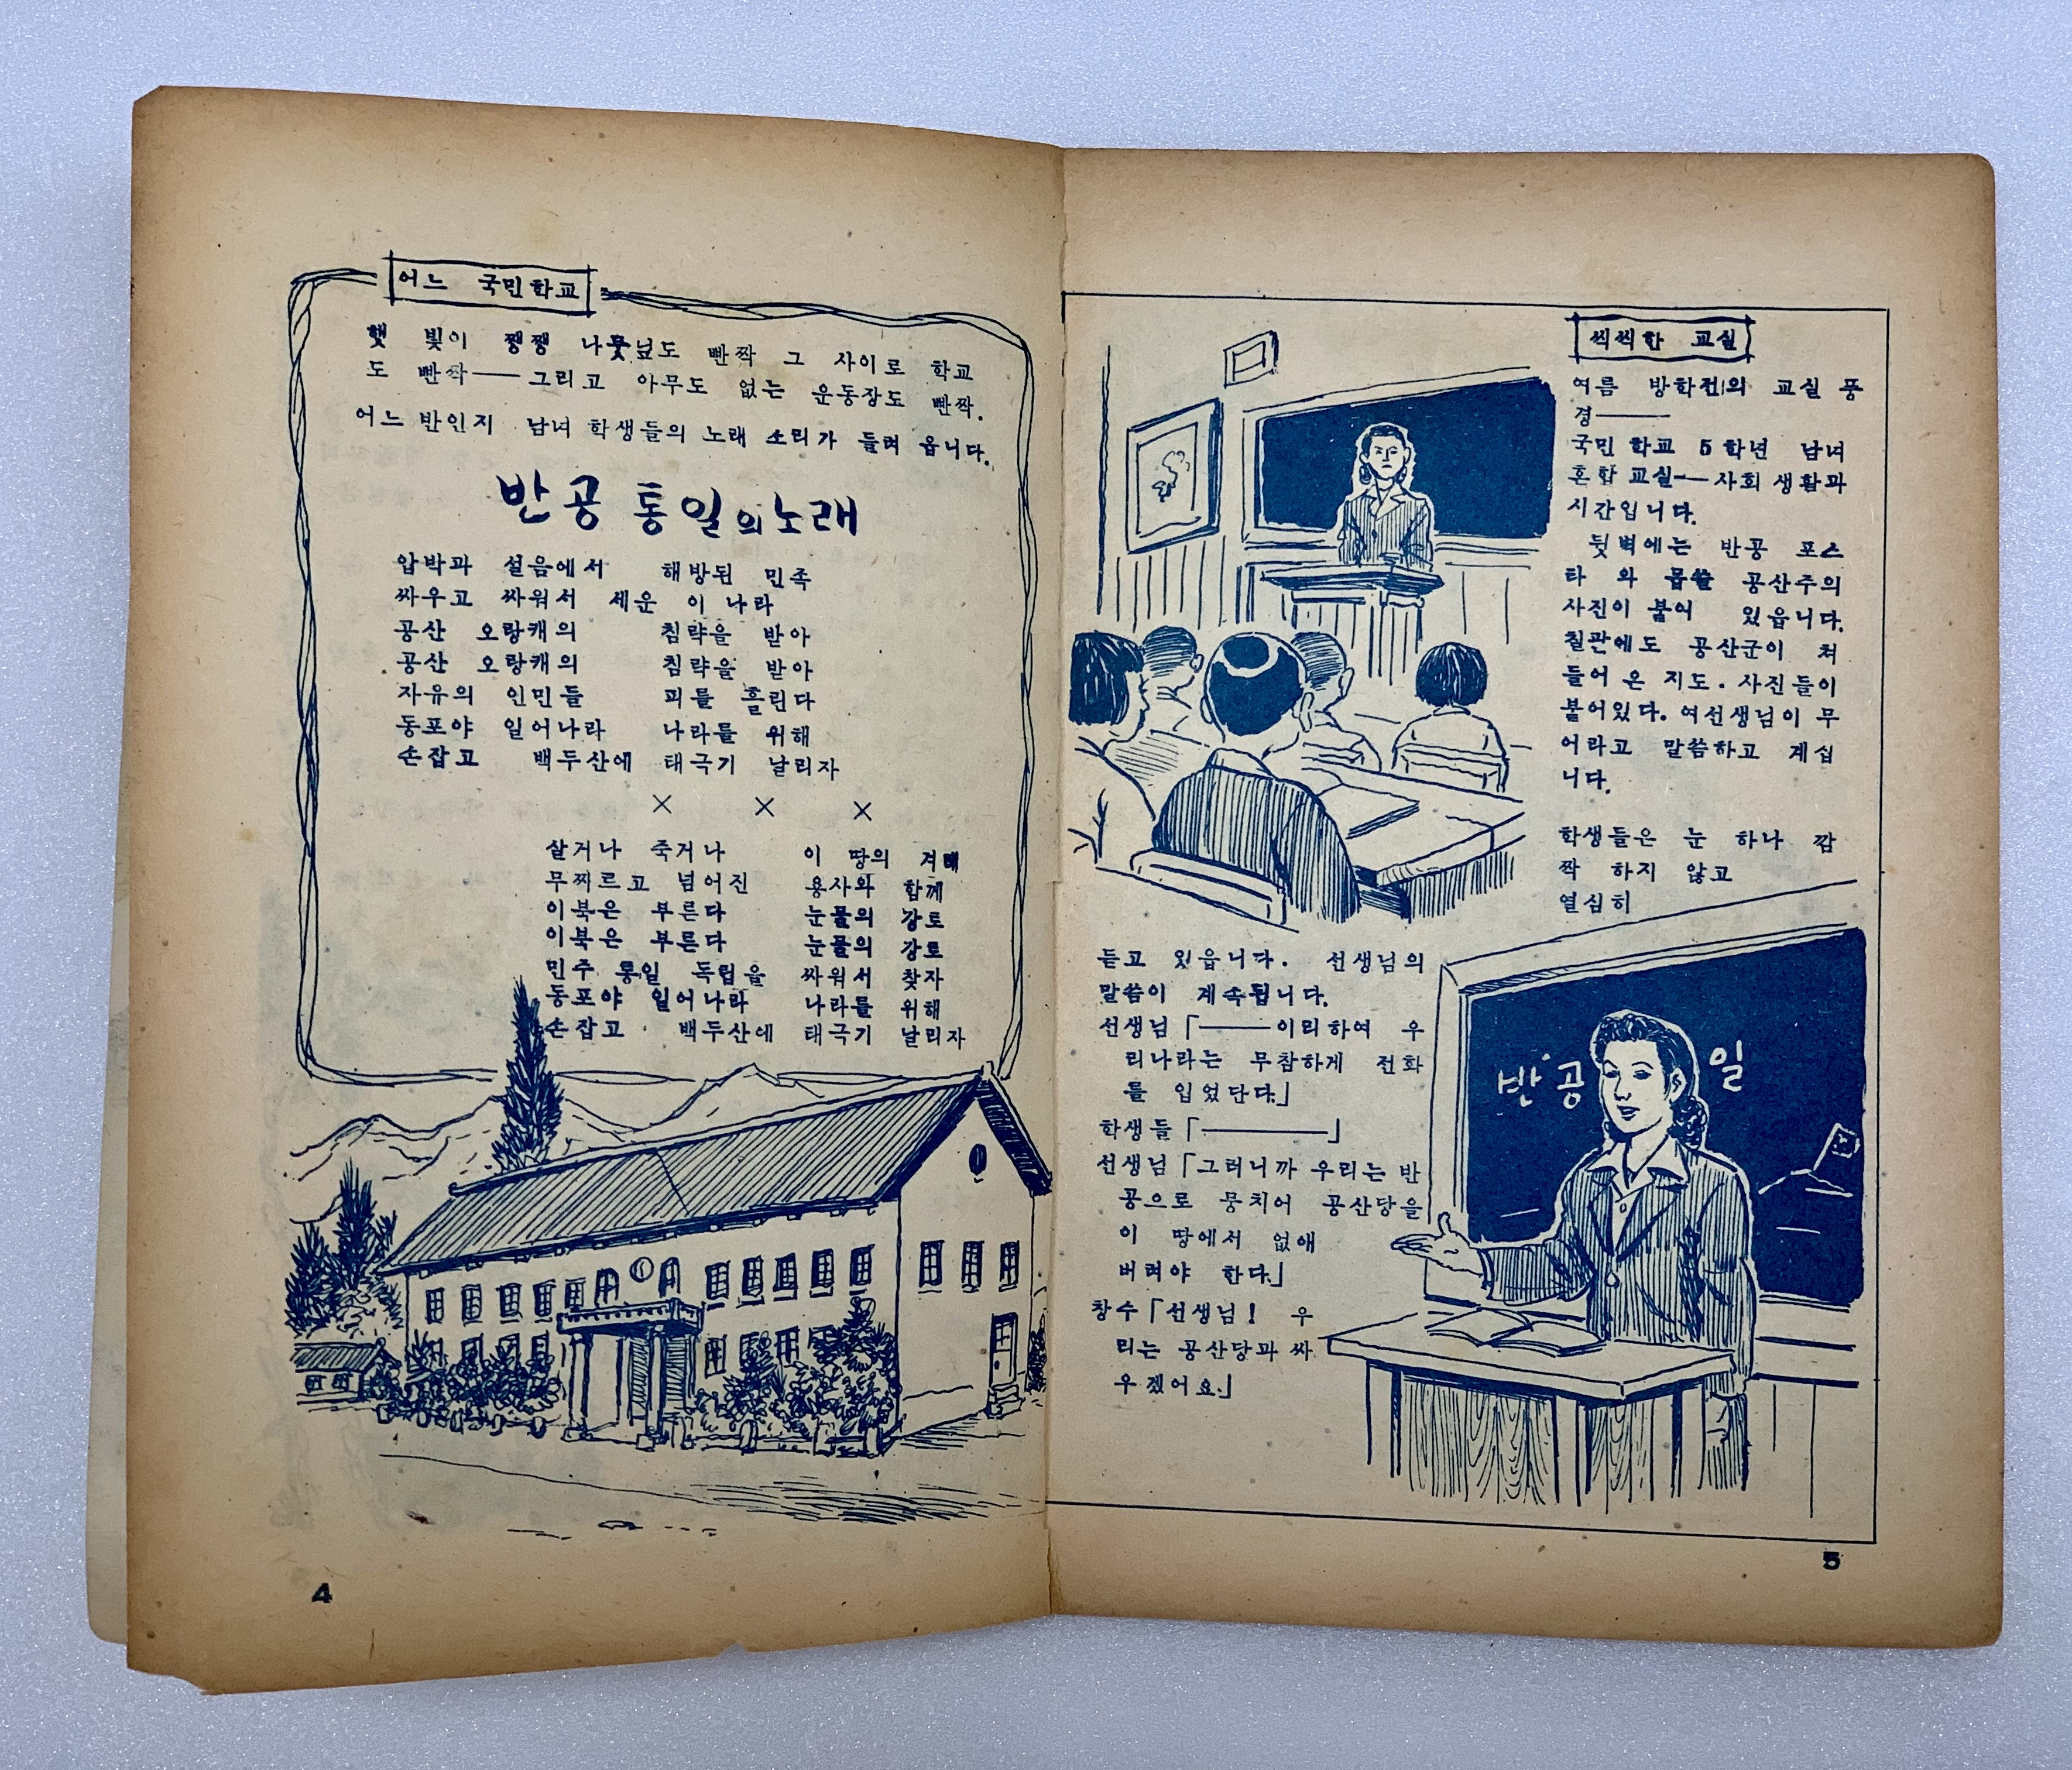 어느 국민학교
햇 빛이 쨍쨍 나뭇닢도 빤짝 그 사이로 학교
도 빤짝——그리고 아무도 없는 운동장도 빤짝.
어느 반인지 남녀 학생들의 노래 소리가 들려 옵니다.
반공 통일의 노래
압박과 설음에서 해방된 민족
싸우고 싸워서 세운 이 나라
공산 오랑캐의 침략을 받아
공산 오랑캐의 침략을 받아
자유의 인민들 피를 흘린다
동포야 일어나라 나라를 위해
손잡고 백두산에 태극기 날리자
× × ×
살거나 죽거나 이 땅의 겨레
무찌르고 넘어진 용사와 함께
이북은 부른다 눈물의 강토
이북은 부른다 눈물의 강토
민주 통일 독립을 싸워서 찾자
동포야 일어나라 나라를 위해
손잡고 백두산에 태극기 날리자
4
씩씩한 교실
여름 방학전의 교실 풍
경——
국민 학교 5 학년 남녀
혼합 교실——사회 생활과
시간입니다.
뒷벽에는 반공 포스
타 와 몹쓸 공산주의
사진이 붙어 있읍니다.
칠판에도 공산군이 처
들어 온 지도. 사진들이
붙어있다. 여선생님이 무
어라고 말씀하고 계십
니다.
학생들은 눈 하나 깜
짝 하지 않고
열심히
듣고 있읍니다. 선생님의
말씀이 계속됩니다.
선생님「——이리하여 우
리나라는 무참하게 전화
를 입었단다.」
학생들「————」
선생님「그러니까 우리는 반
공으로 뭉치어 공산당을
이 땅에서 없애
버려야 한다.」
창수「선생님! 우
리는 공산당과 싸
우겠어요.」
반공 일
5